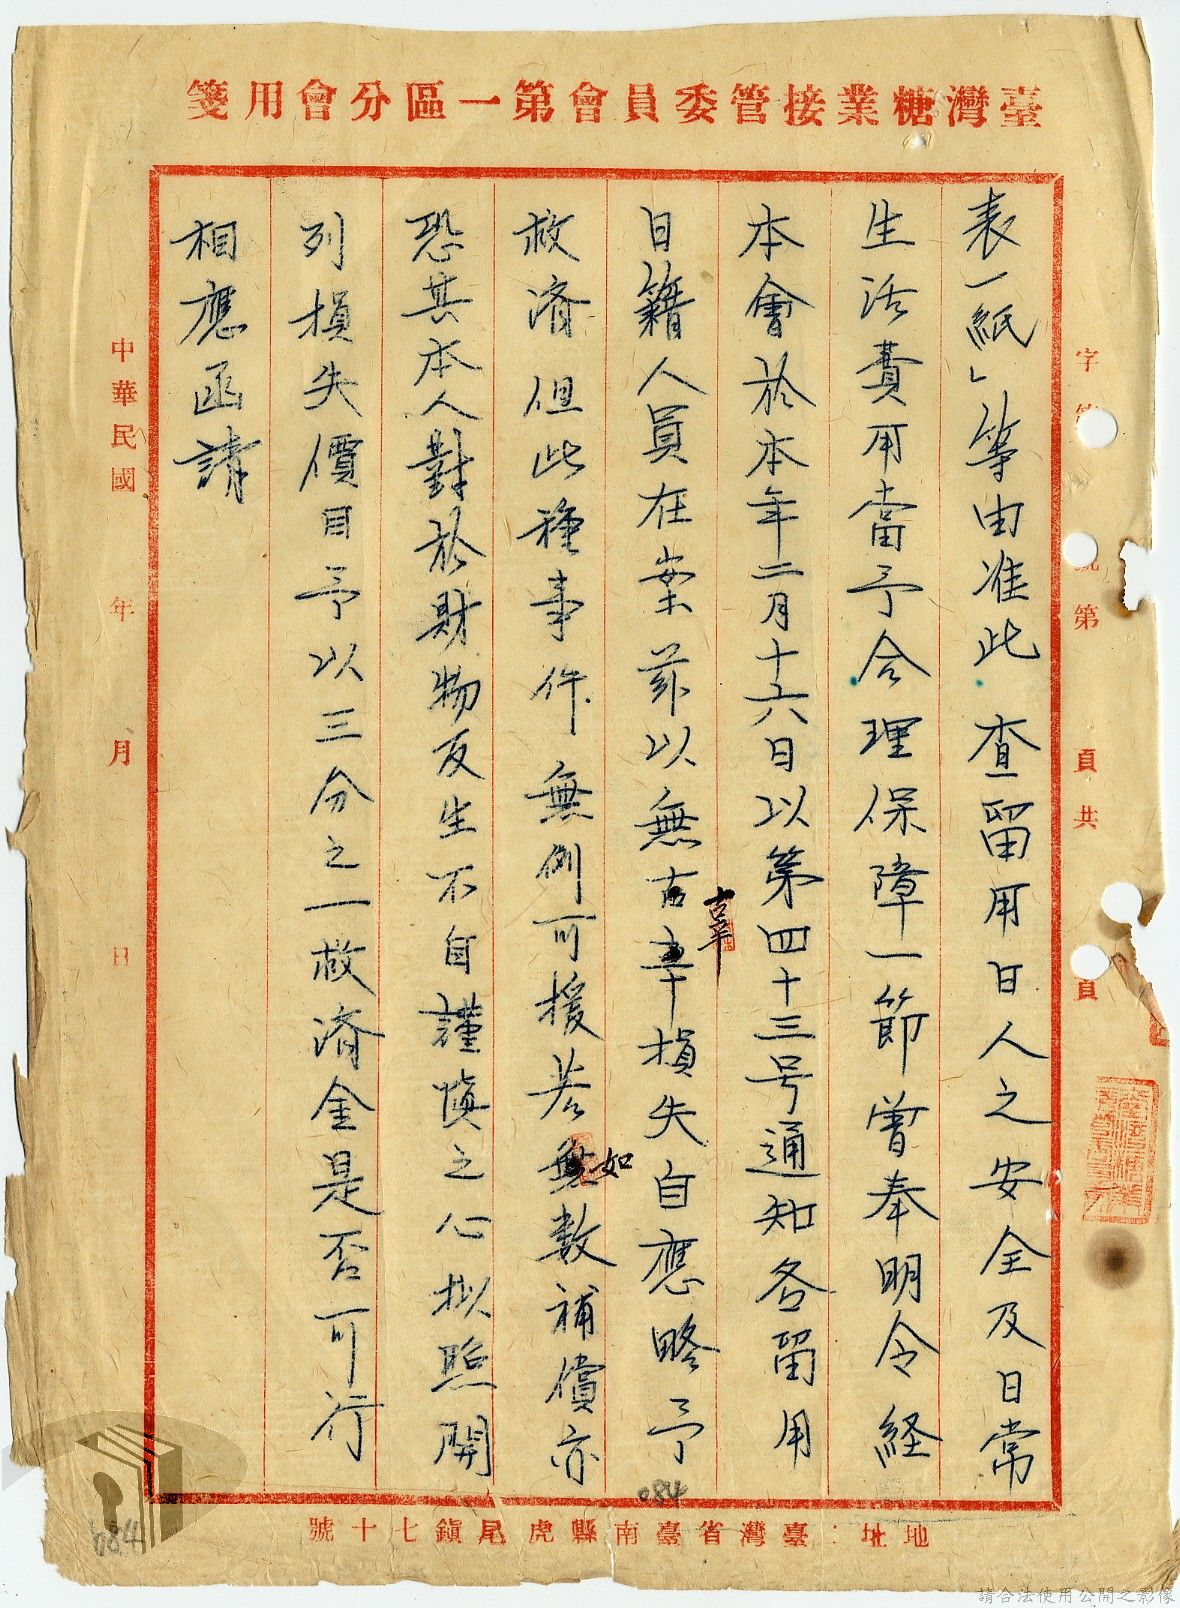 臺灣糖業接管委員會第一區分會用箋
字第 號第 頁共 頁
表一紙」等由准此查留用日人之安全及日常
生活費用當予合理保障一節曾奉明令経
本會於本年二月十六日以第四十三号通知各留用
日籍人員在案茲以無古辜損失自應略予
古辜
救済但此種事件無例可援若無数補償亦
如
恐其本人對於財物反生不自謹慎之心拟照開
列損失價目予以三分之一救济金是否可行
相應函請
中華民國 年 月 日
地址：臺灣省臺南縣虎尾鎮七十號
084
084
請合法使用公開之影像